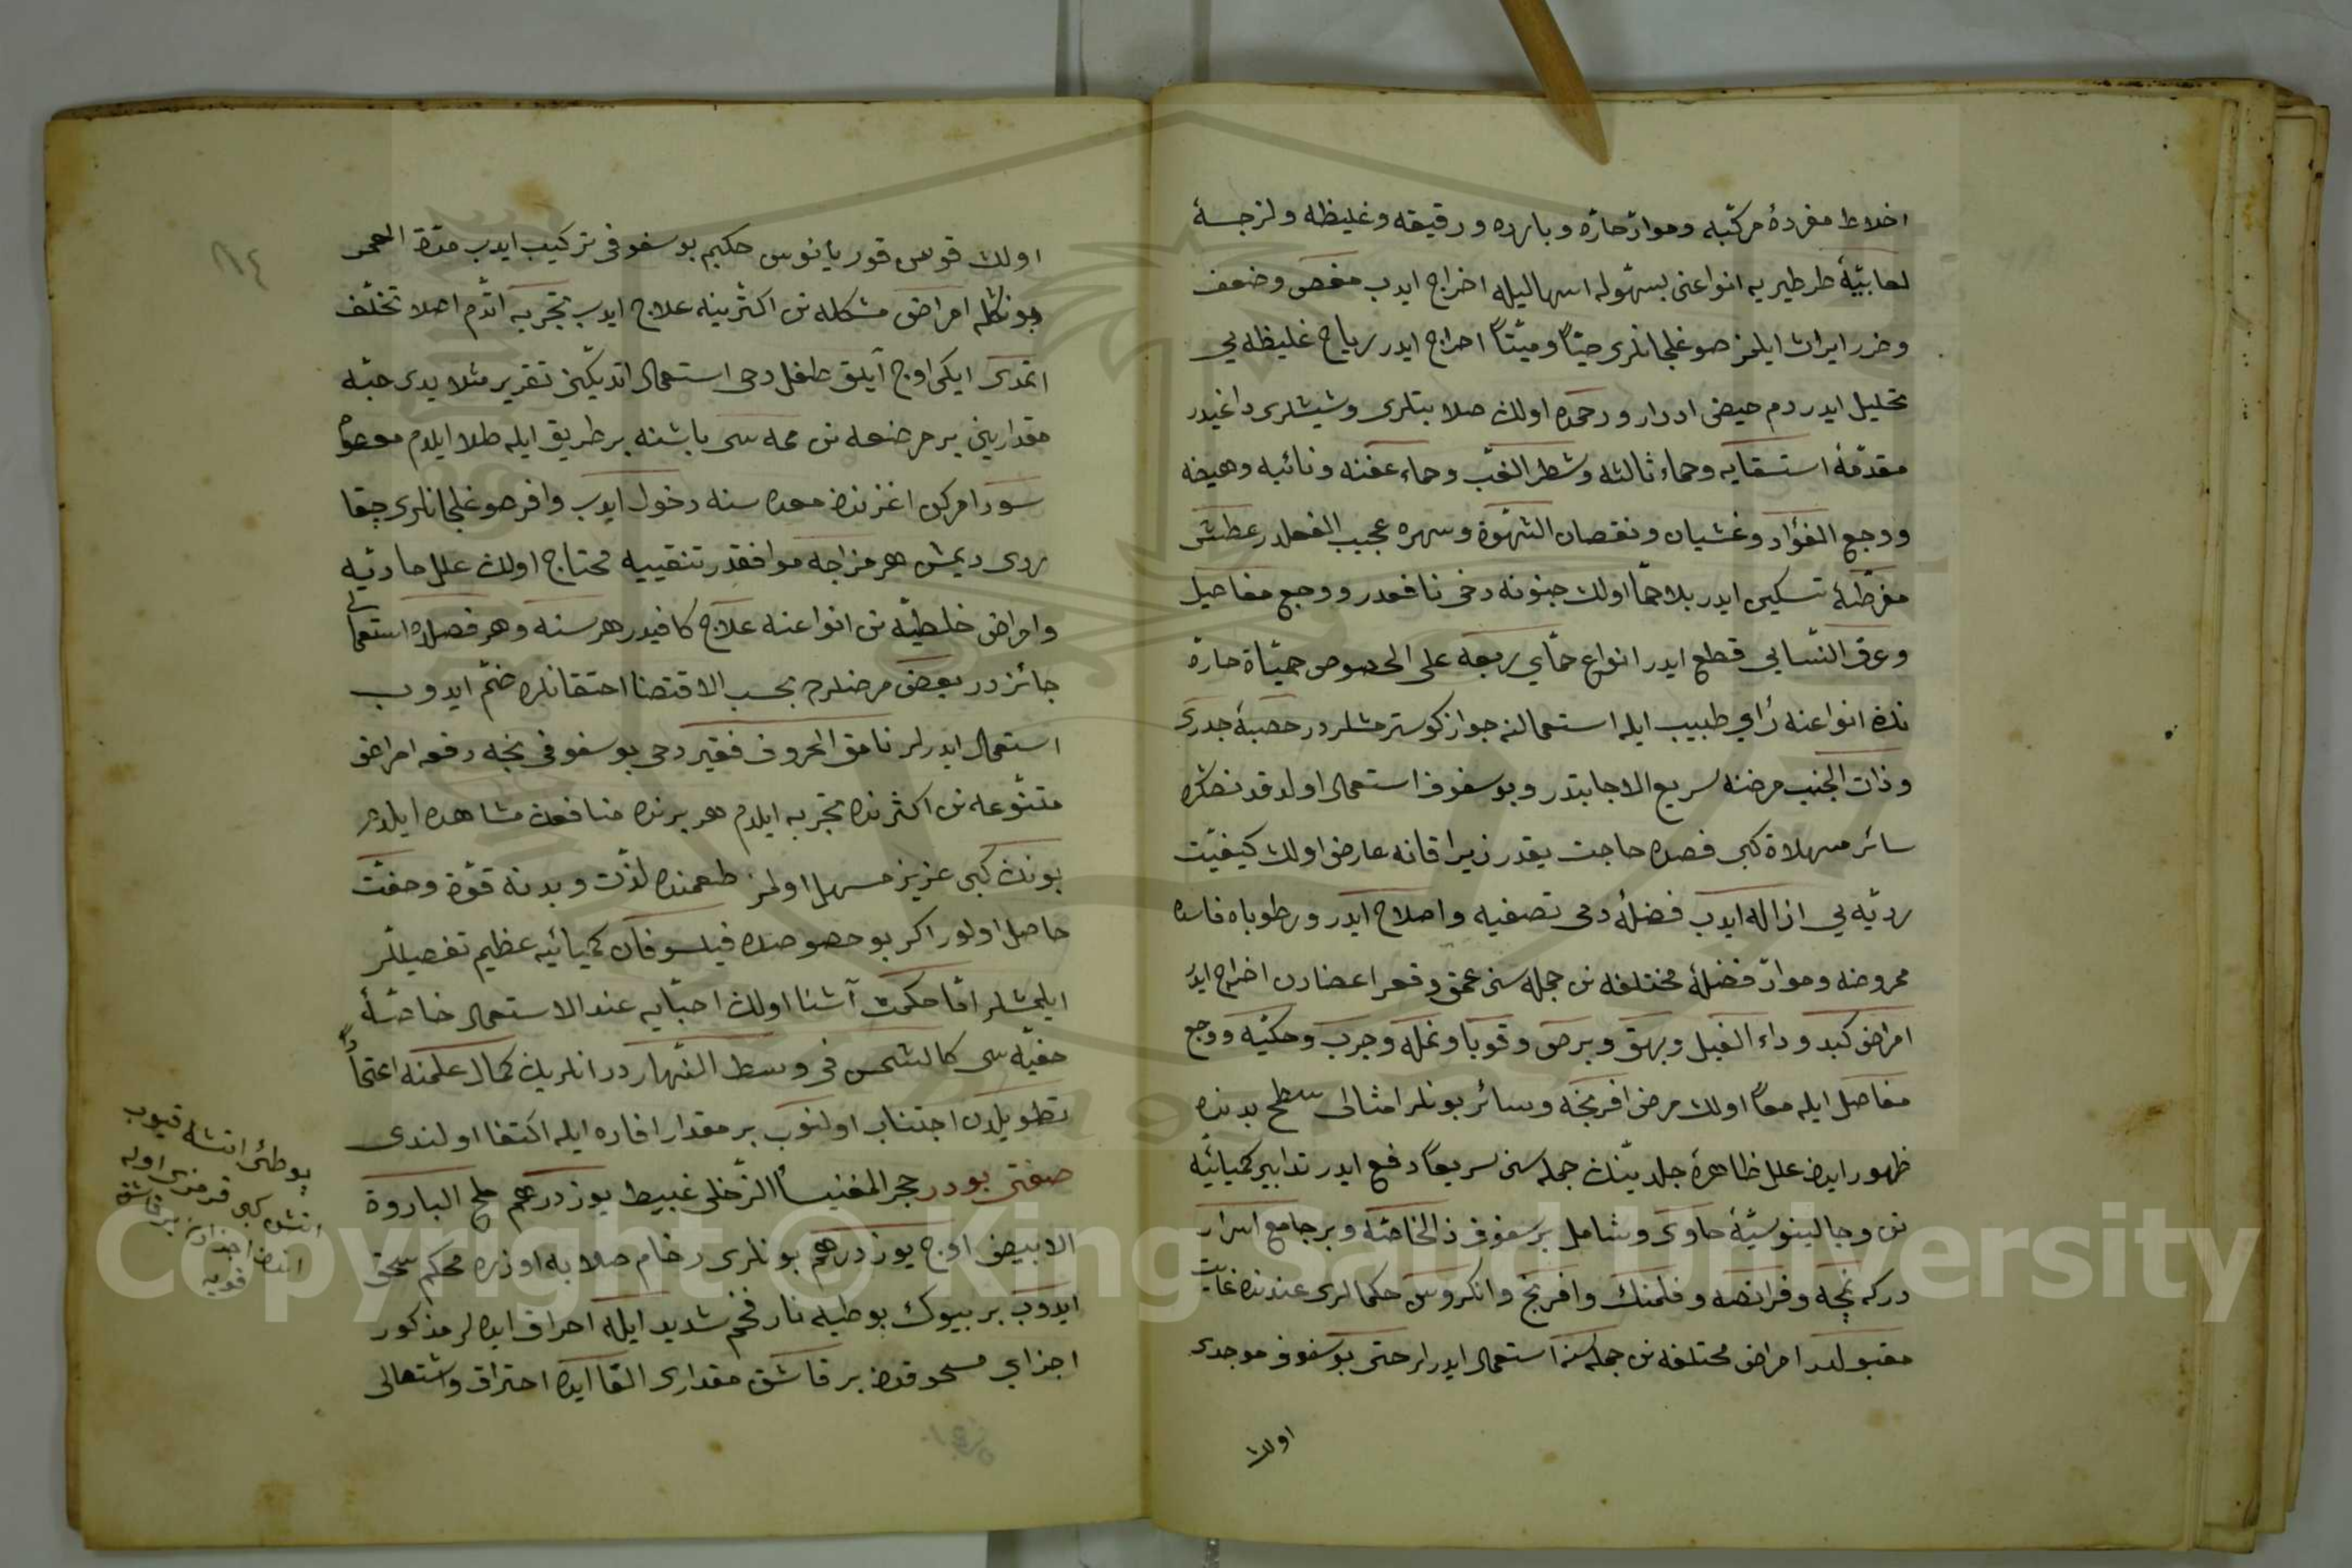 اخلاط مفردۀ مركّبه وموادّ حارّه وبارده ورقيقه وغليظه ولزجۀ
لعابيّۀ طرطيريه انواعنى بسهوله اسهاليله اخراج ايدب مغص وضعف
وضرر ايراث ايلمز صوغلجانلرى حيّاً وميّتاً اخراج ايدر رياح غليظه يى
تحليل ايدر دم حيض ادرار ورحمده اولان صلابتلرى وشيشلرى داغيدر
مقدّمۀ استسقايه وحماء ثالثه وشطر الغبّ وحماء عفنه ونائبه وهيضه
ووجع الفؤاد وغشيان ونقصان الشهوة وسهره عجيب الفعلدر عطش
مفرطۀ تسكين ايدر بلا حمّا اولان جنونه دخى نافعدر ووجع مفاصل
وعرق النسايى قطع ايدر انواع حمّاي ربعه على الخصوص حميّاة حارّه
نك انواعنه رأي طبيب ايله استعمالنه جواز كوسترمشلردر حصبۀ جدرى
وذات الجنب مرضنه سريع الاجابتدر وبو سفوف استعمال اولندقدنصكره
سائر مسهلاة كبى فصده حاجت يقدر زيرا قانه عارض اولان كيفيّت
رديّه يى ازاله ايدب فضلۀ دمى تصفيه واصلاح ايدر ورطوباه فاسده
محروضه وموادّ فضلۀ مختلفه نك جمله سن عمق وقعر اعضادن اخراج ايدر
امراض كبد وداء الفيل وبهق وبرص وقوبا ونمله وجرب وحكّيه ووجع
مفاصل ايله معاً اولان مرض افرنجه وسائر بونلر امثالى سطح بدنده
ظهور ايدن علل ظاهرۀ جلديّنك جمله سن سريعاً دفع ايدر تدابير كميائيّه
نك وجالينوسيّۀ حاوى وشامل بر سفوف ذالخاصّه وبر جامع اسرار
دركه نمچه وفرانصه وفلمنك وافرنج وانكروس حكمالرى عندنده غايت
مقبولدر امراض مختلفه نك جمله سنه استعمال ايدرلر حتى بو سفوف موجدى
اولان
٨٤
اولان قوس قوريانوس حكيم بو سفوفى تركيب ايدب مدّة العمر
بونكله امراض مشكله نك اكثرينه علاج ايدب تجربه اتدم اصلا تخلّف
اتمدى ايكى اوج آيلق طفل دخى استعمال اتديكن تقرير مثلا يدى حبّه
مقدارين بر مرضعه نك ممه سى باشنه بر طريق ايله طلا ايلدم معصوم
سود امركن اغزندن معده سنه دخول ايدب وافر صوغلجانلرى چقا
ردى ديمش هر مزاجه موافقدر تنقييه محتاج اولان علل حادثيه
وامراض خلطيّه نك انواعنه علاج كافيدر هر سنه وهر فصلده استعمالى
جائزدر بعض مرضلرده بحسب الاقتضا احتقانلره ضمّ ايدوب
استعمال ايدرلر نامق الحروف فقير دخى بو سفوفى نجه دفعه امراض
متنوّعه نك اكثرنده تجربه ايلدم هر برنده منافعن مشاهده ايلدم
بونك كبى عزيز مسهل اولمز طعمنده لذّت وبدنه قوّة وخفّت
حاصل اولور اكر بو خصوصده فيلسوفان كميائيه عظيم تفصيللر
ايلمشلر امّا حكمت آشنا اولان احبّايه عند الاستعمال خاصّۀ
خفيّه سى كالشمس فى وسط النهار در انلرين كمال علمنه اعتماداً
تطويلدن اجتناب اولنوب بر مقدار افاده ايله اكتفا اولندى
صفتى بودر حجر المغنيسا الزحلى غبيط يوز درهم ملح الباروة
الابيض اوچ يوز درهم بونلرى رخام صلايه اوزره محكم سحق
ايدوب بر بيوك بوطيه نار فحم شديد ايله احراق ايده لر مذكور
اجزاي مسحوقدن بر قاشق مقدارى القا ايده احتراق واشتعالى
بوطئ اتشه قيوب
اتش كبى قرمزى اوله
اندن اجزادن بر قاشق
قويه
Copyright © King Saud University